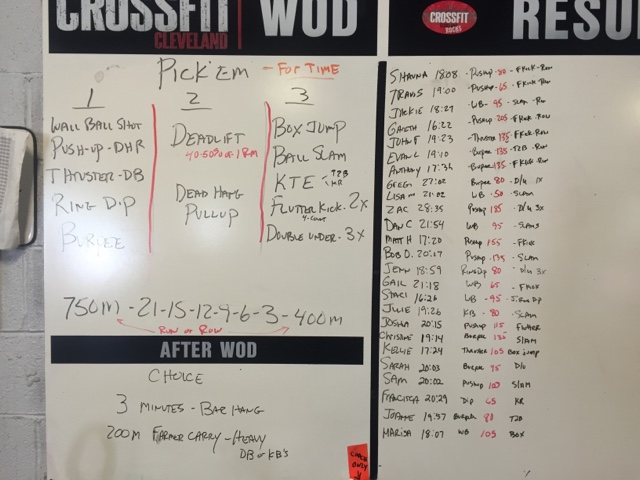 CROSSFIT
CLEVELAND
WOD
PICK'EM - FOR TIME
1
WALL BALL SHOT
PUSH-UP - DHR
THRUSTER - DB
RING DIP
BURPEE
2
DEADLIFT
40-50% of 1RM
DEAD HANG
PULLUP
3
BOX JUMP
BALL SLAM
KTE - T2B
KR
FLUTTER KICK - 2x
4-COUNT
DOUBLE UNDER - 3x
750M - 21-15-12-9-6-3 - 400M
RUN or ROW
AFTER WOD
CHOICE
3 MINUTES - BAR HANG
200M FARMER CARRY - HEAVY
DB or KB's
CROSSFIT
ROCKS
RESU
SHAUNA 18:08 - PUSHUP - FKICK - ROW
TRAVIS 19:00 - PUSHUP - 65 - FKICK - RUN
JACKIE 18:27 WB - 95 - SLAM - RUN
GARETH 16:22 - PUSHUP 205 - FKICK - ROW
JOHN F 19:23 - THRUSTER 135 - FKICK - ROW
EVAN C 19:10 - BURPEE 135 - T2B - RUN
ANTHONY 17:36 BURPEE 135 - FKICK
GREG 27:02 BURPEE 80 - D/U 1x
LISA 21:02 WB - 50 - SLAM
ZAC 28:35 PUSHUP 185 - D/U 3x
DAN C 21:54 WB 95 - SLAMS
MATT H 17:20 PUSHUP 155 - FKICK
BOB O. 20:17 PUSHUP - 135 - SLAM
JENN 18:59 RING DIP 80 - D/U 3x
GAIL 21:18 WB 65 - FKICK
STACI 16:26 WB - 95 - JUMP
JULIE 19:26 KB - 80 - SLAM
JOSHA 20:15 PUSHUP 115 FLUTTER
CHRISTINE 19:14 BURPEE SLAM
KELLIE 17:24 THRUSTER 103 BOX JUMP
SARAH 20:03 BURPEE 95 D/U
SAM 20:02 PUSHUP 100 SLAM
FRANCISCA 20:29 DIP 65 KR
JOANNE 19:57 BURPEE 80 T2B
MARISA 18:07 WB 103 BOX
CHALK
ONLY